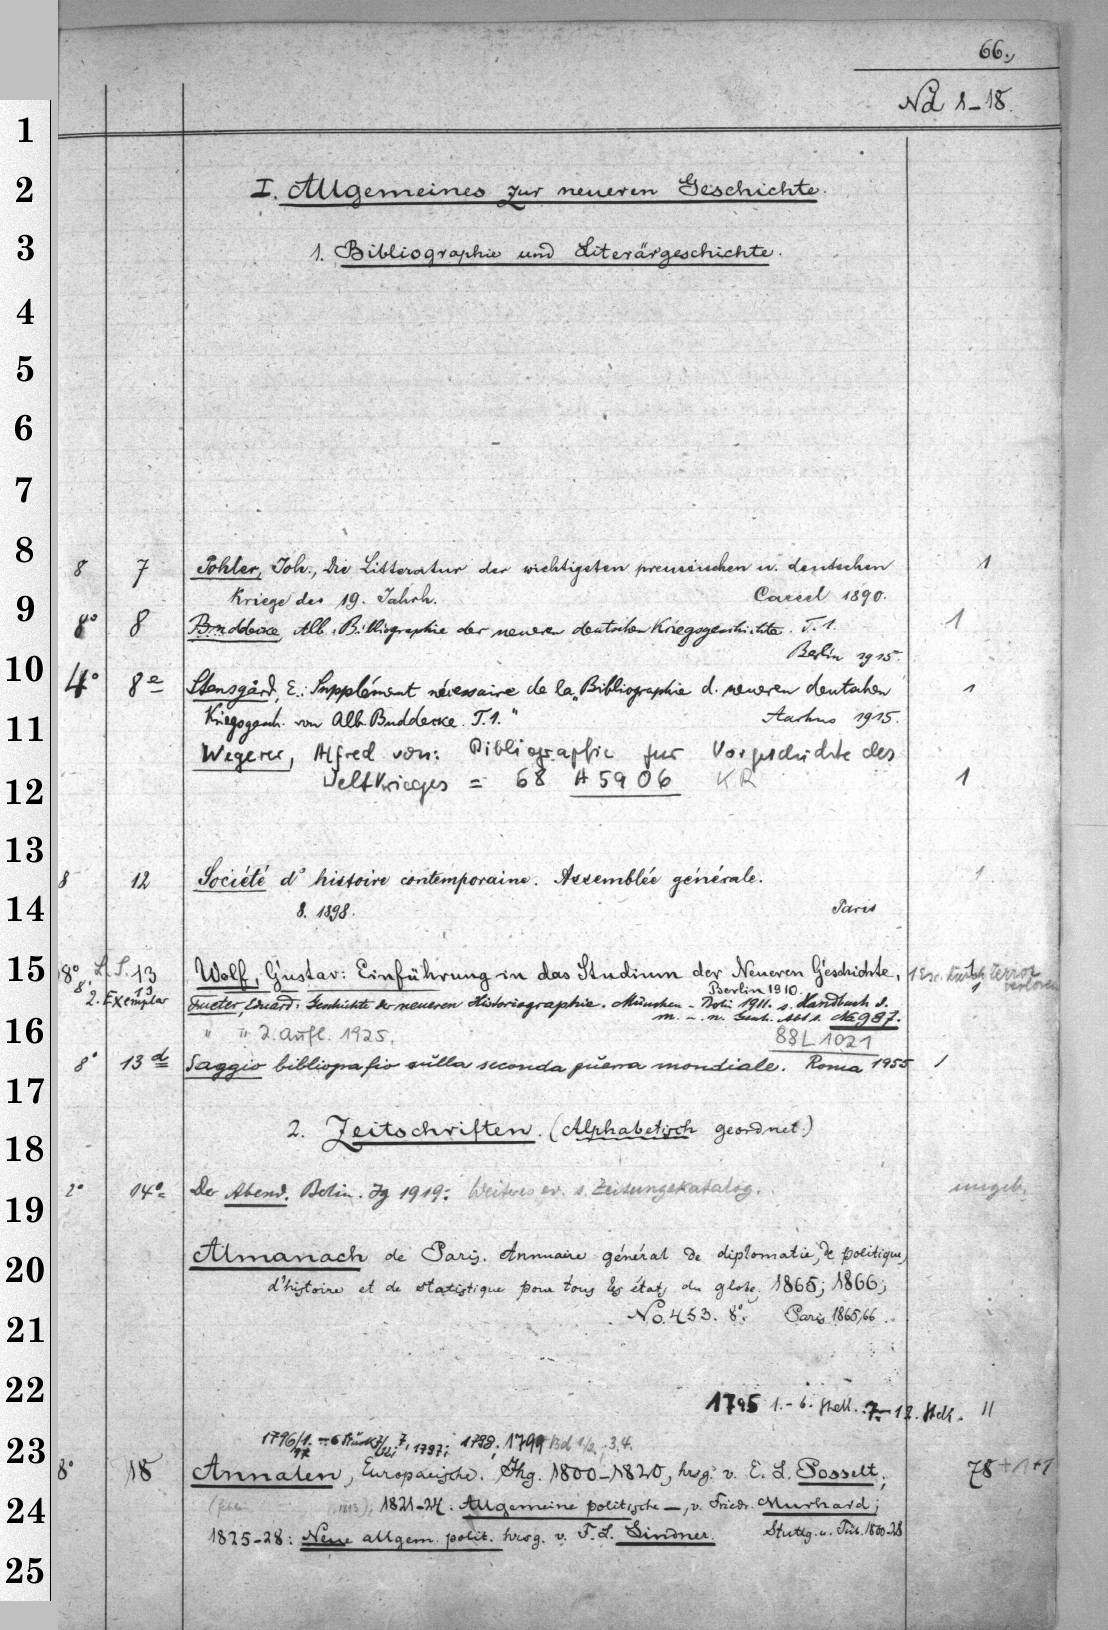 66.
Nd 1-18.
1
2 I. Allgemeines zur neueren Geschichte.
3 1. Bibliographie und Literärgeschichte.
4
5
6
7
8 8 7 Pohler, Joh., Die Litteratur der wichtigsten preussischen u. deutschen 1
Kriege des 19. Jahrh. Cassel 1890.
9 8° 8 Buddecke, Alb.: Bibliographie der neueren deutschen Kriegsgeschichte. T.1. 1
Berlin 1915.
10 4° 8e Stensgård, E.: Supplément nécessaire de la „Bibliographie d. neueren deutschen 1
11 Kriegsgesch. von Alb. Buddecke. T.1." Aarhus 1915.
Wegerer, Alfred von: Bibliographie zur Vorgeschichte des
12 Weltkrieges = 68 A 5906 KR 1
13
8 12 Société d'histoire contemporaine. Assemblée générale. 1
14 8. 1898. Paris
15 8° L.S. 13 Wolf, Gustav: Einführung in das Studium der Neueren Geschichte, 1 Ex. verloren
8° 13 Berlin 1910.
2. Exemplar Fueter, Eduard: Geschichte der neueren Historiographie. München - Berlin 1911. s. Handbuch d. 1
16 m. - n. Gesch. Abt 1. Ne 987.
" " 2. Aufl. 1925. 88 L 1021
8° 13d Saggio bibliografio sulla seconda guerra mondiale. Roma 1955 1
17
18 2. Zeitschriften. (Alphabetisch geordnet.)
19 2° 14° Der Abend. Berlin. Jg 1919: Weiteres ev. s. Zeitungskatalog. ungeb.
20 Almanach de Paris. Annuaire général de diplomatie, de politique,
d'histoire et de statistique pour tous les états du globe. 1865; 1866;
21 No. 453. 8°. Paris 1865/66.
22 1795 1.-6. Stck. 7.-12. Stck. II
23 1796/1. - 6 Stück, 7, 1797; 1798; 1799 Bd 1/2, 3,4.
8° 18 Annalen, Europäische. Jhg. 1800-1820, hrsg. v. E. L. Posselt; 78 +1+1
24 1821-24: Allgemeine politische —, v. Friedr. Murhard;
1825-28: Neue allgem. polit. hrsg. v. F. L. Lindner. Stuttg. u. Tüb. 1800-28
25